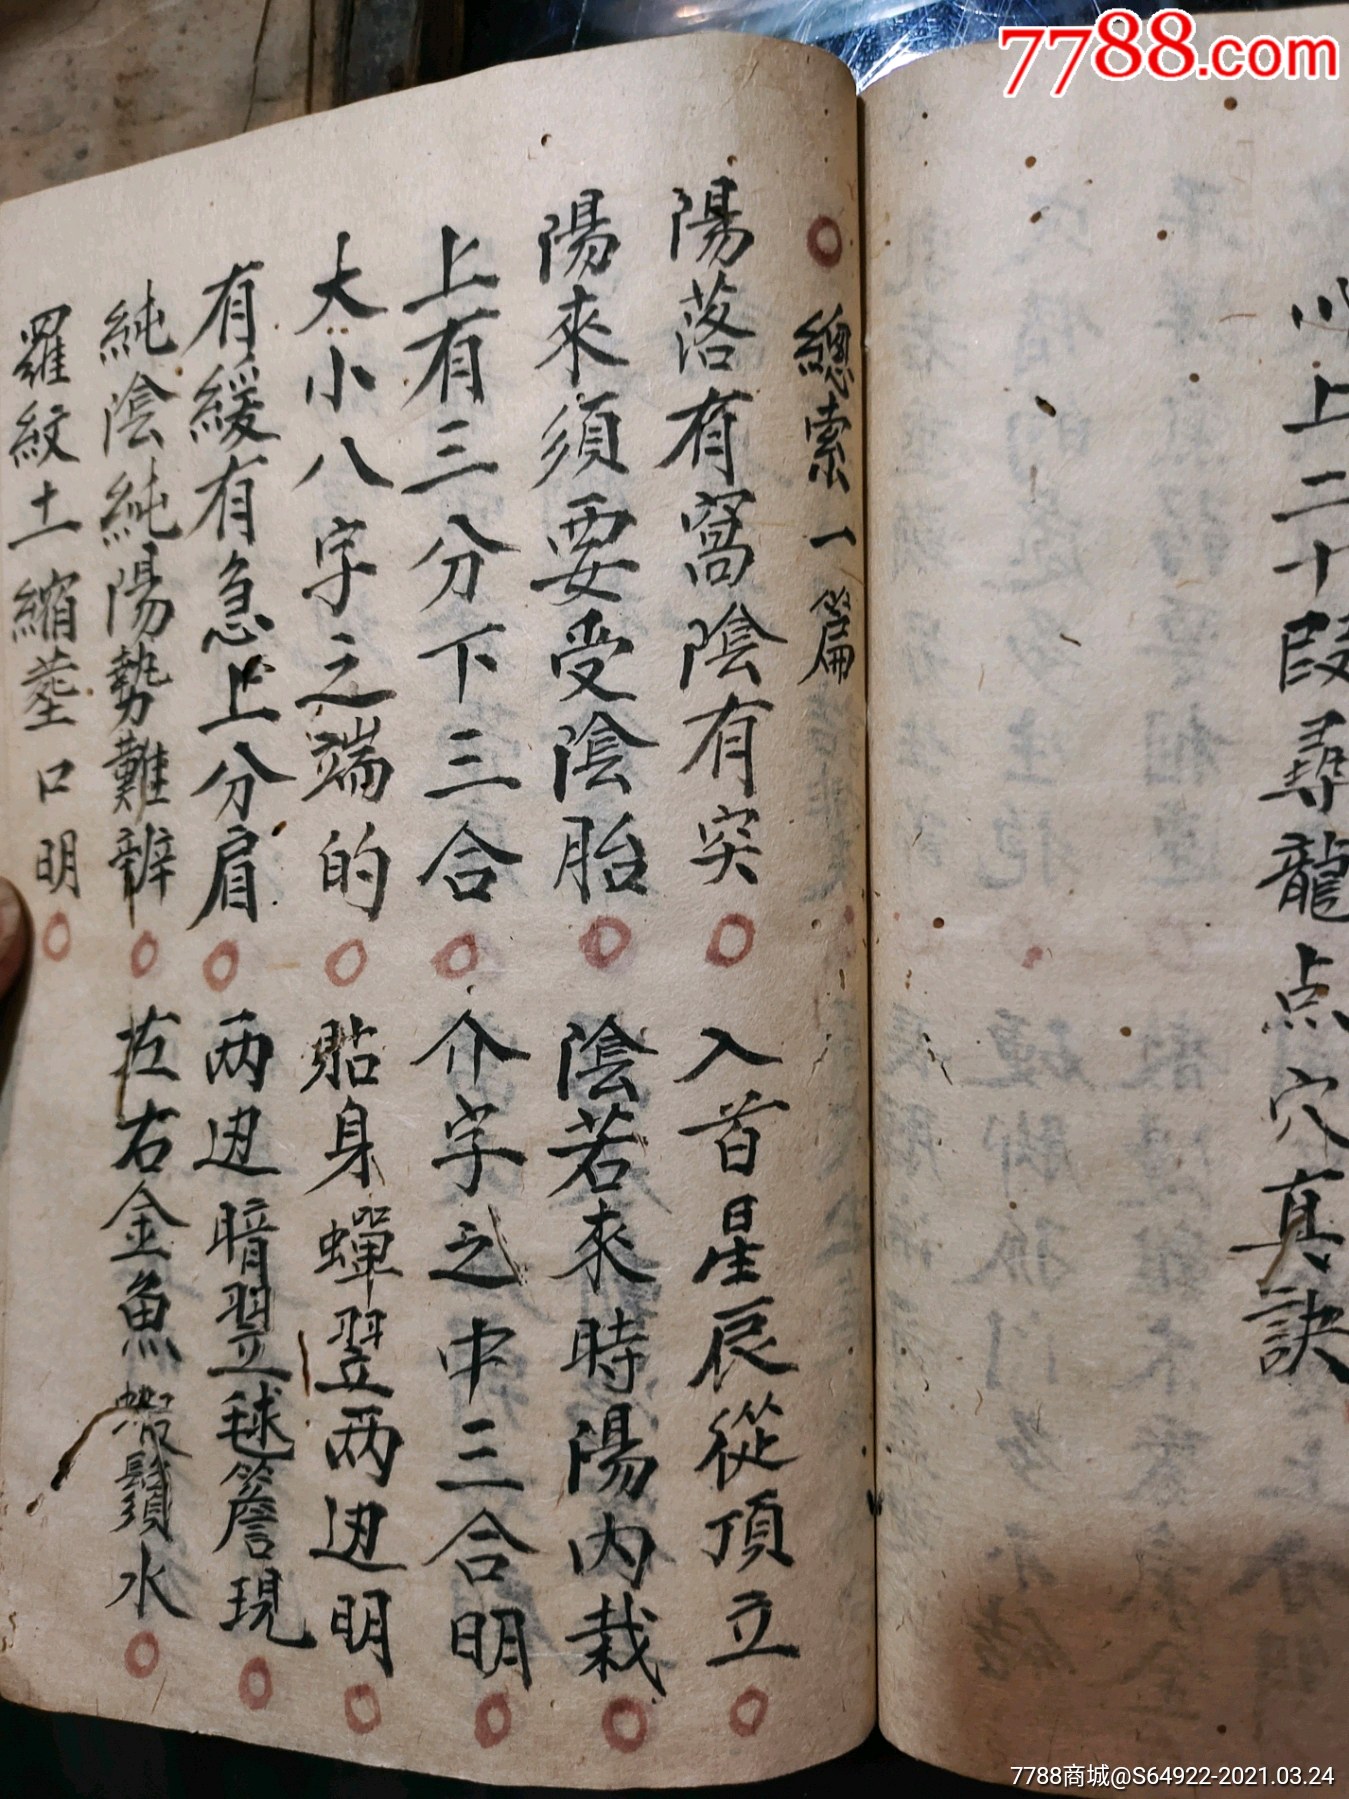 7788.com
以上二十段尋龍点穴真訣
總索一篇
陽落有窩陰有突○入首星辰從頂立○
陽來須要受陰胎○陰若來時陽內栽○
上有三分下三合○介字之中三合明○
大小八字之端的○貼身蟬翌两边明○
有緩有急上分肩○两边暗翌毬簷現○
純陰純陽勢難辨○左右金魚蝦鬚水○
羅紋土縮塟口明○
7788商城@S64922-2021.03.24